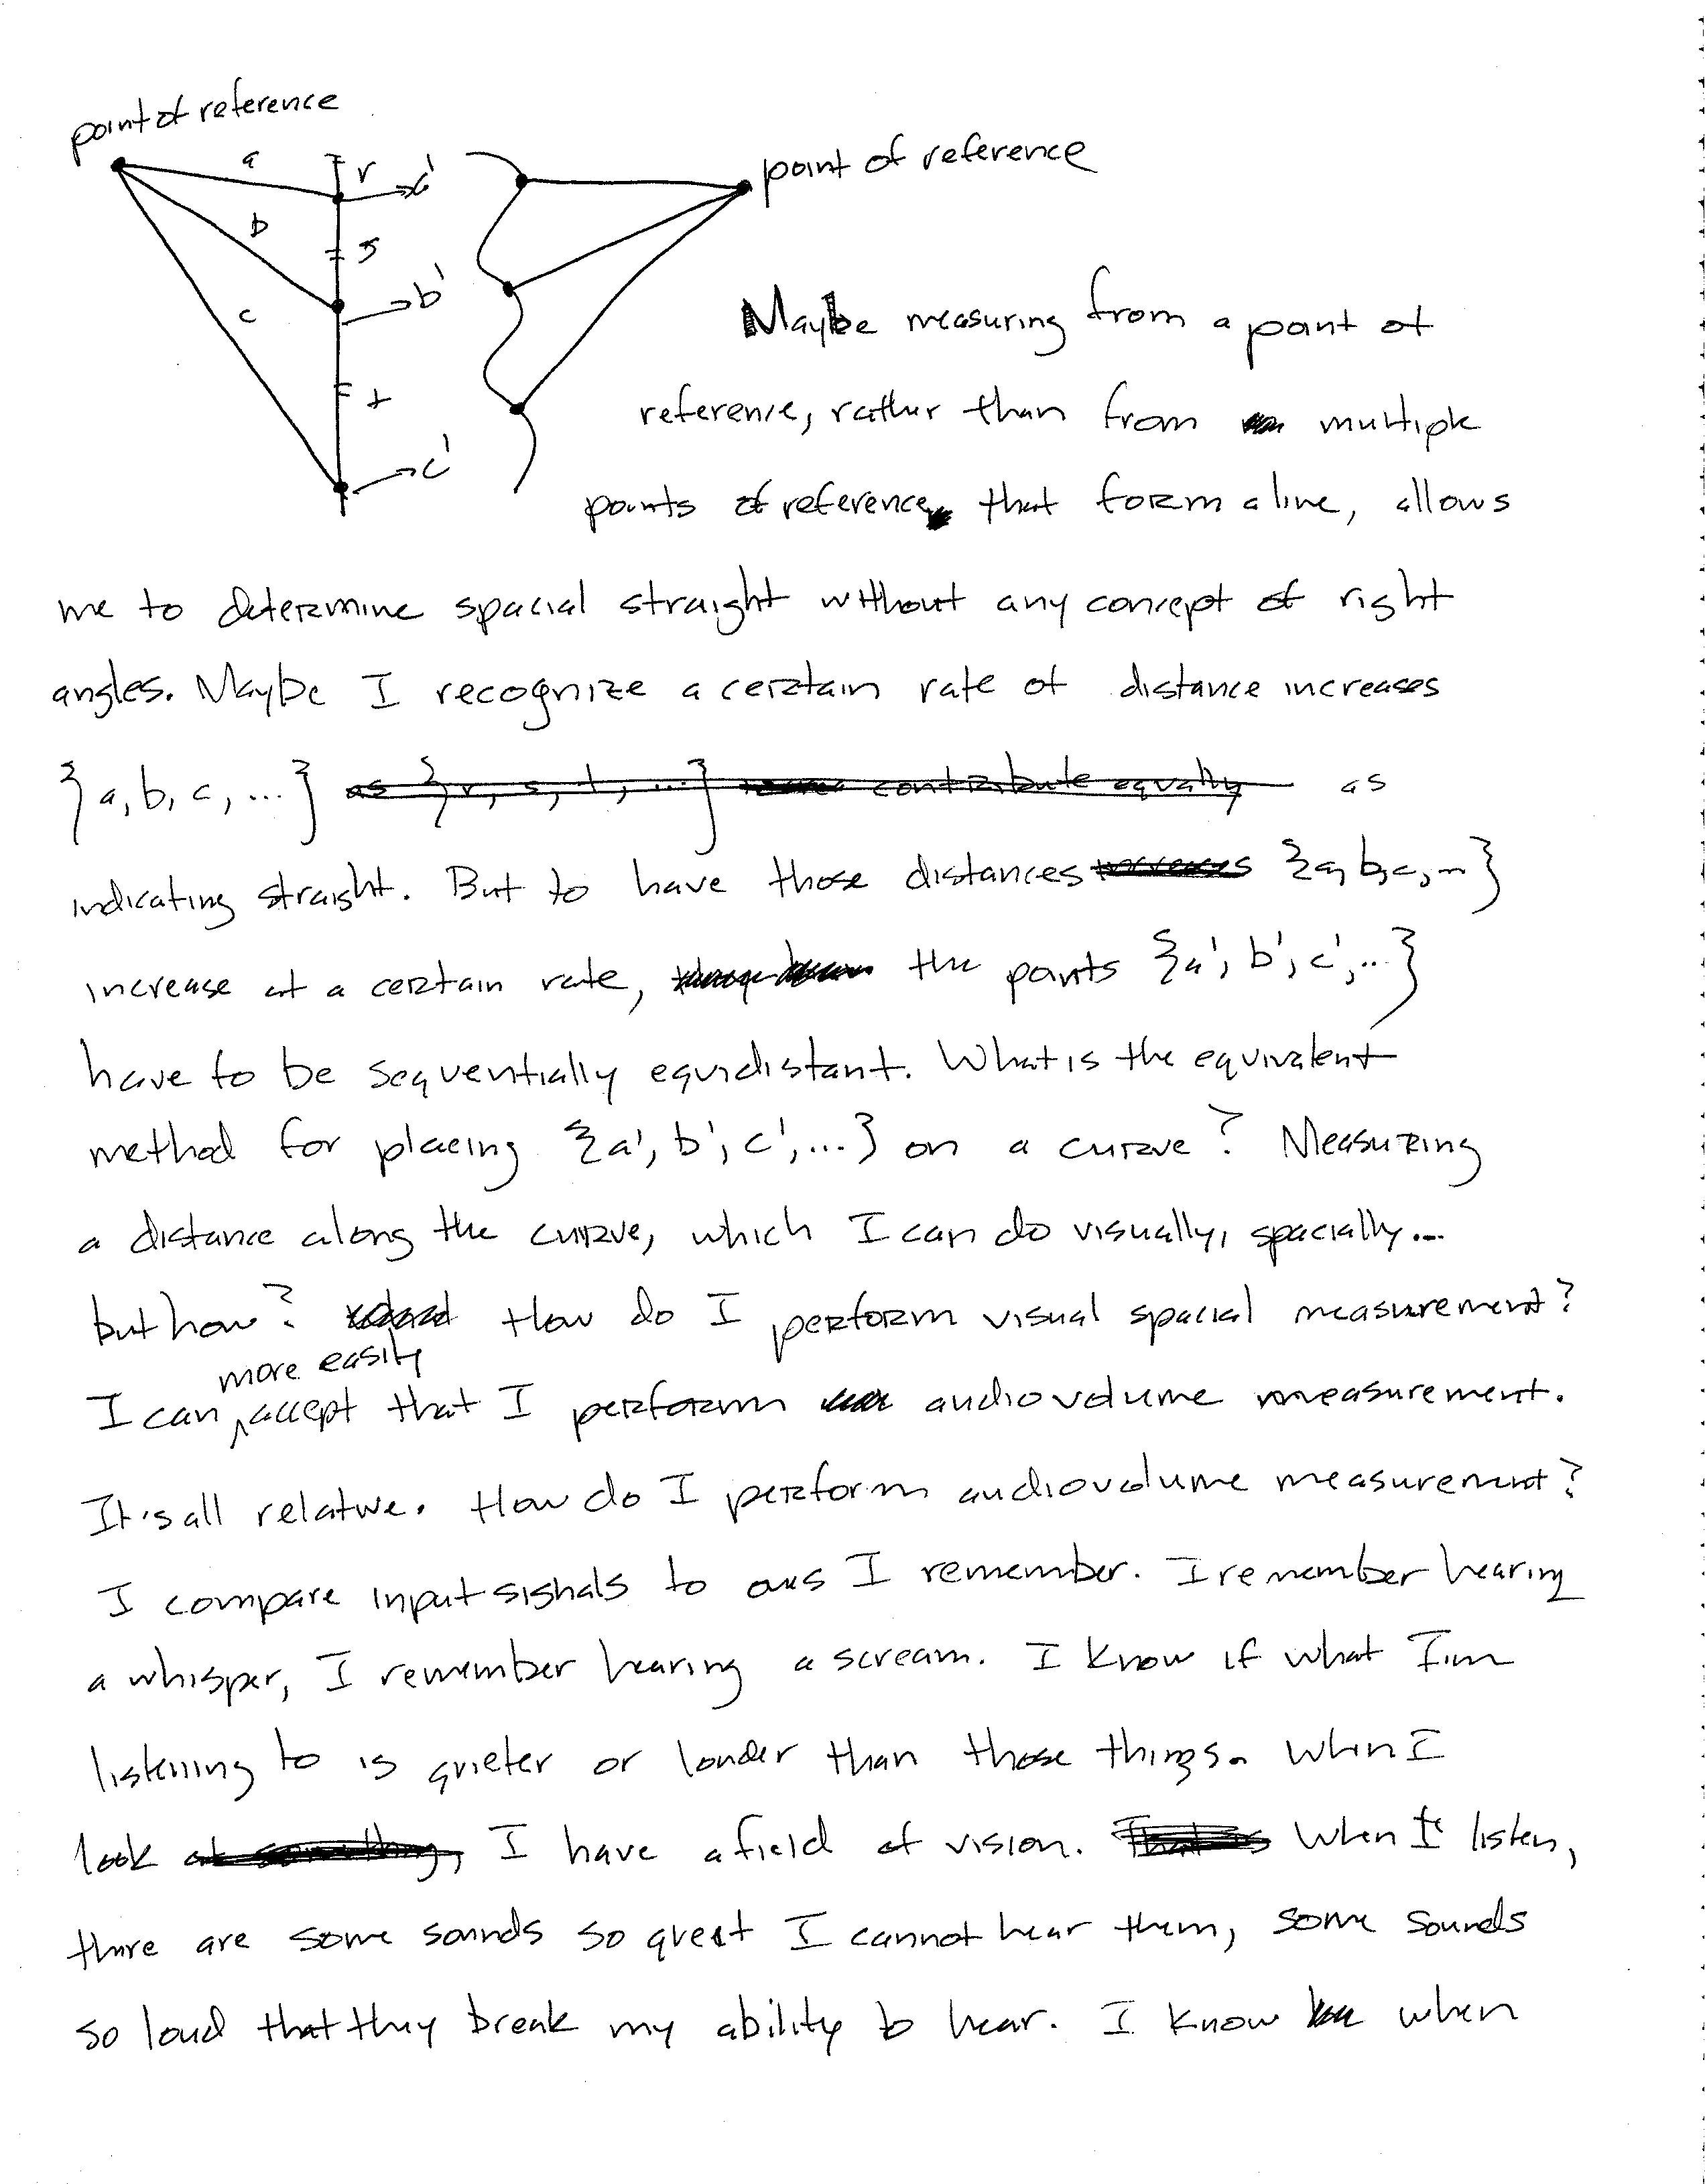 point of reference
a
r
a'
point of reference
b
s
b'
c
t
c'
Maybe measuring from a point of
reference, rather than from multiple
points of reference that form a line, allows
me to determine spacial straight without any concept of right
angles. Maybe I recognize a certain rate of distance increases
{a, b, c, ...} as {r, s, t, ...} contribute equally as
indicating straight. But to have those distances increases {a, b, c, ...}
increase at a certain rate, the points {a', b', c', ...}
have to be sequentially equidistant. What is the equivalent
method for placing {a', b', c', ...} on a curve? Measuring
a distance along the curve, which I can do visually, spacially...
but how? How do I perform visual spacial measurement?
more easily
I can accept that I perform audiovolume measurement.
It's all relative. How do I perform audiovolume measurement?
I compare input signals to ones I remember. I remember hearing
a whisper, I remember hearing a scream. I know if what I'm
listening to is quieter or louder than those things. When I
look at something, I have a field of vision. That is When I listen,
there are some sounds so quiet I cannot hear them, some sounds
so loud that they break my ability to hear. I know when